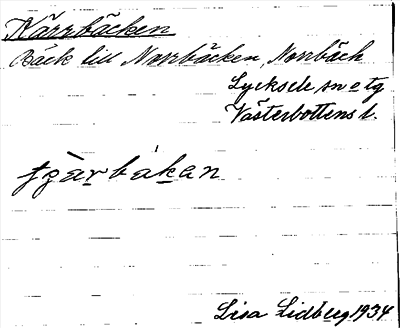 Kärrbäcken
Bäck till Norrbäcken, Norrbäck
Lycksele sn o tg
Västerbottens l.
Lisa Lidberg 1934